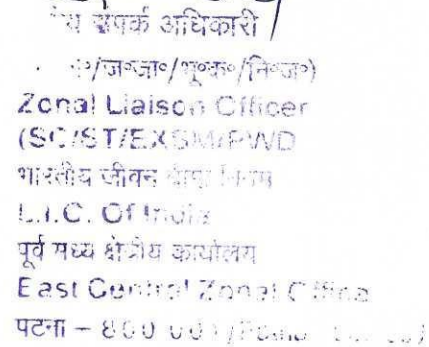 संपर्क अधिकारी
ज०जा०/भू०क०/नि०ज०)
Zonal Liaison Officer
(SC/ST/EXSM/PWD
भारतीय जीवन बीमा निगम
L.I.C. Of India
पूर्व मध्य क्षेत्रीय कार्यालय
East Central Zonal Office
पटना – 800 001